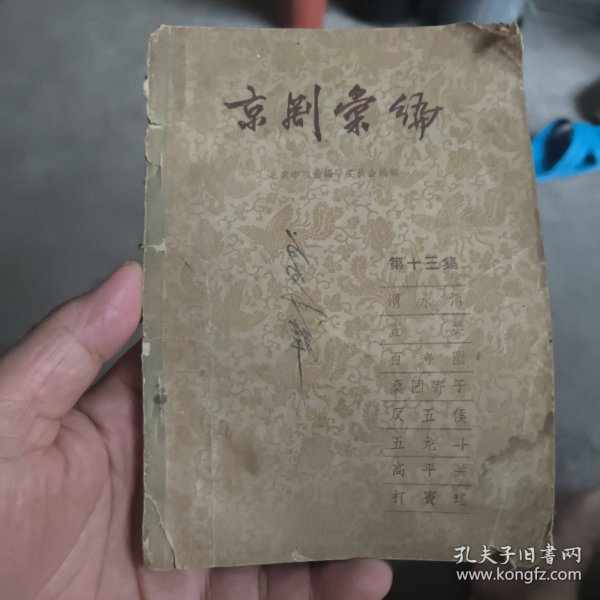 京剧彙编
北京市戏曲编导委员会编辑
第十三集
渭水河
百寿图
桑园寄子
反五侯
五龙斗
高平关
打寳瑶
孔夫子旧书网
www.kongfz.com